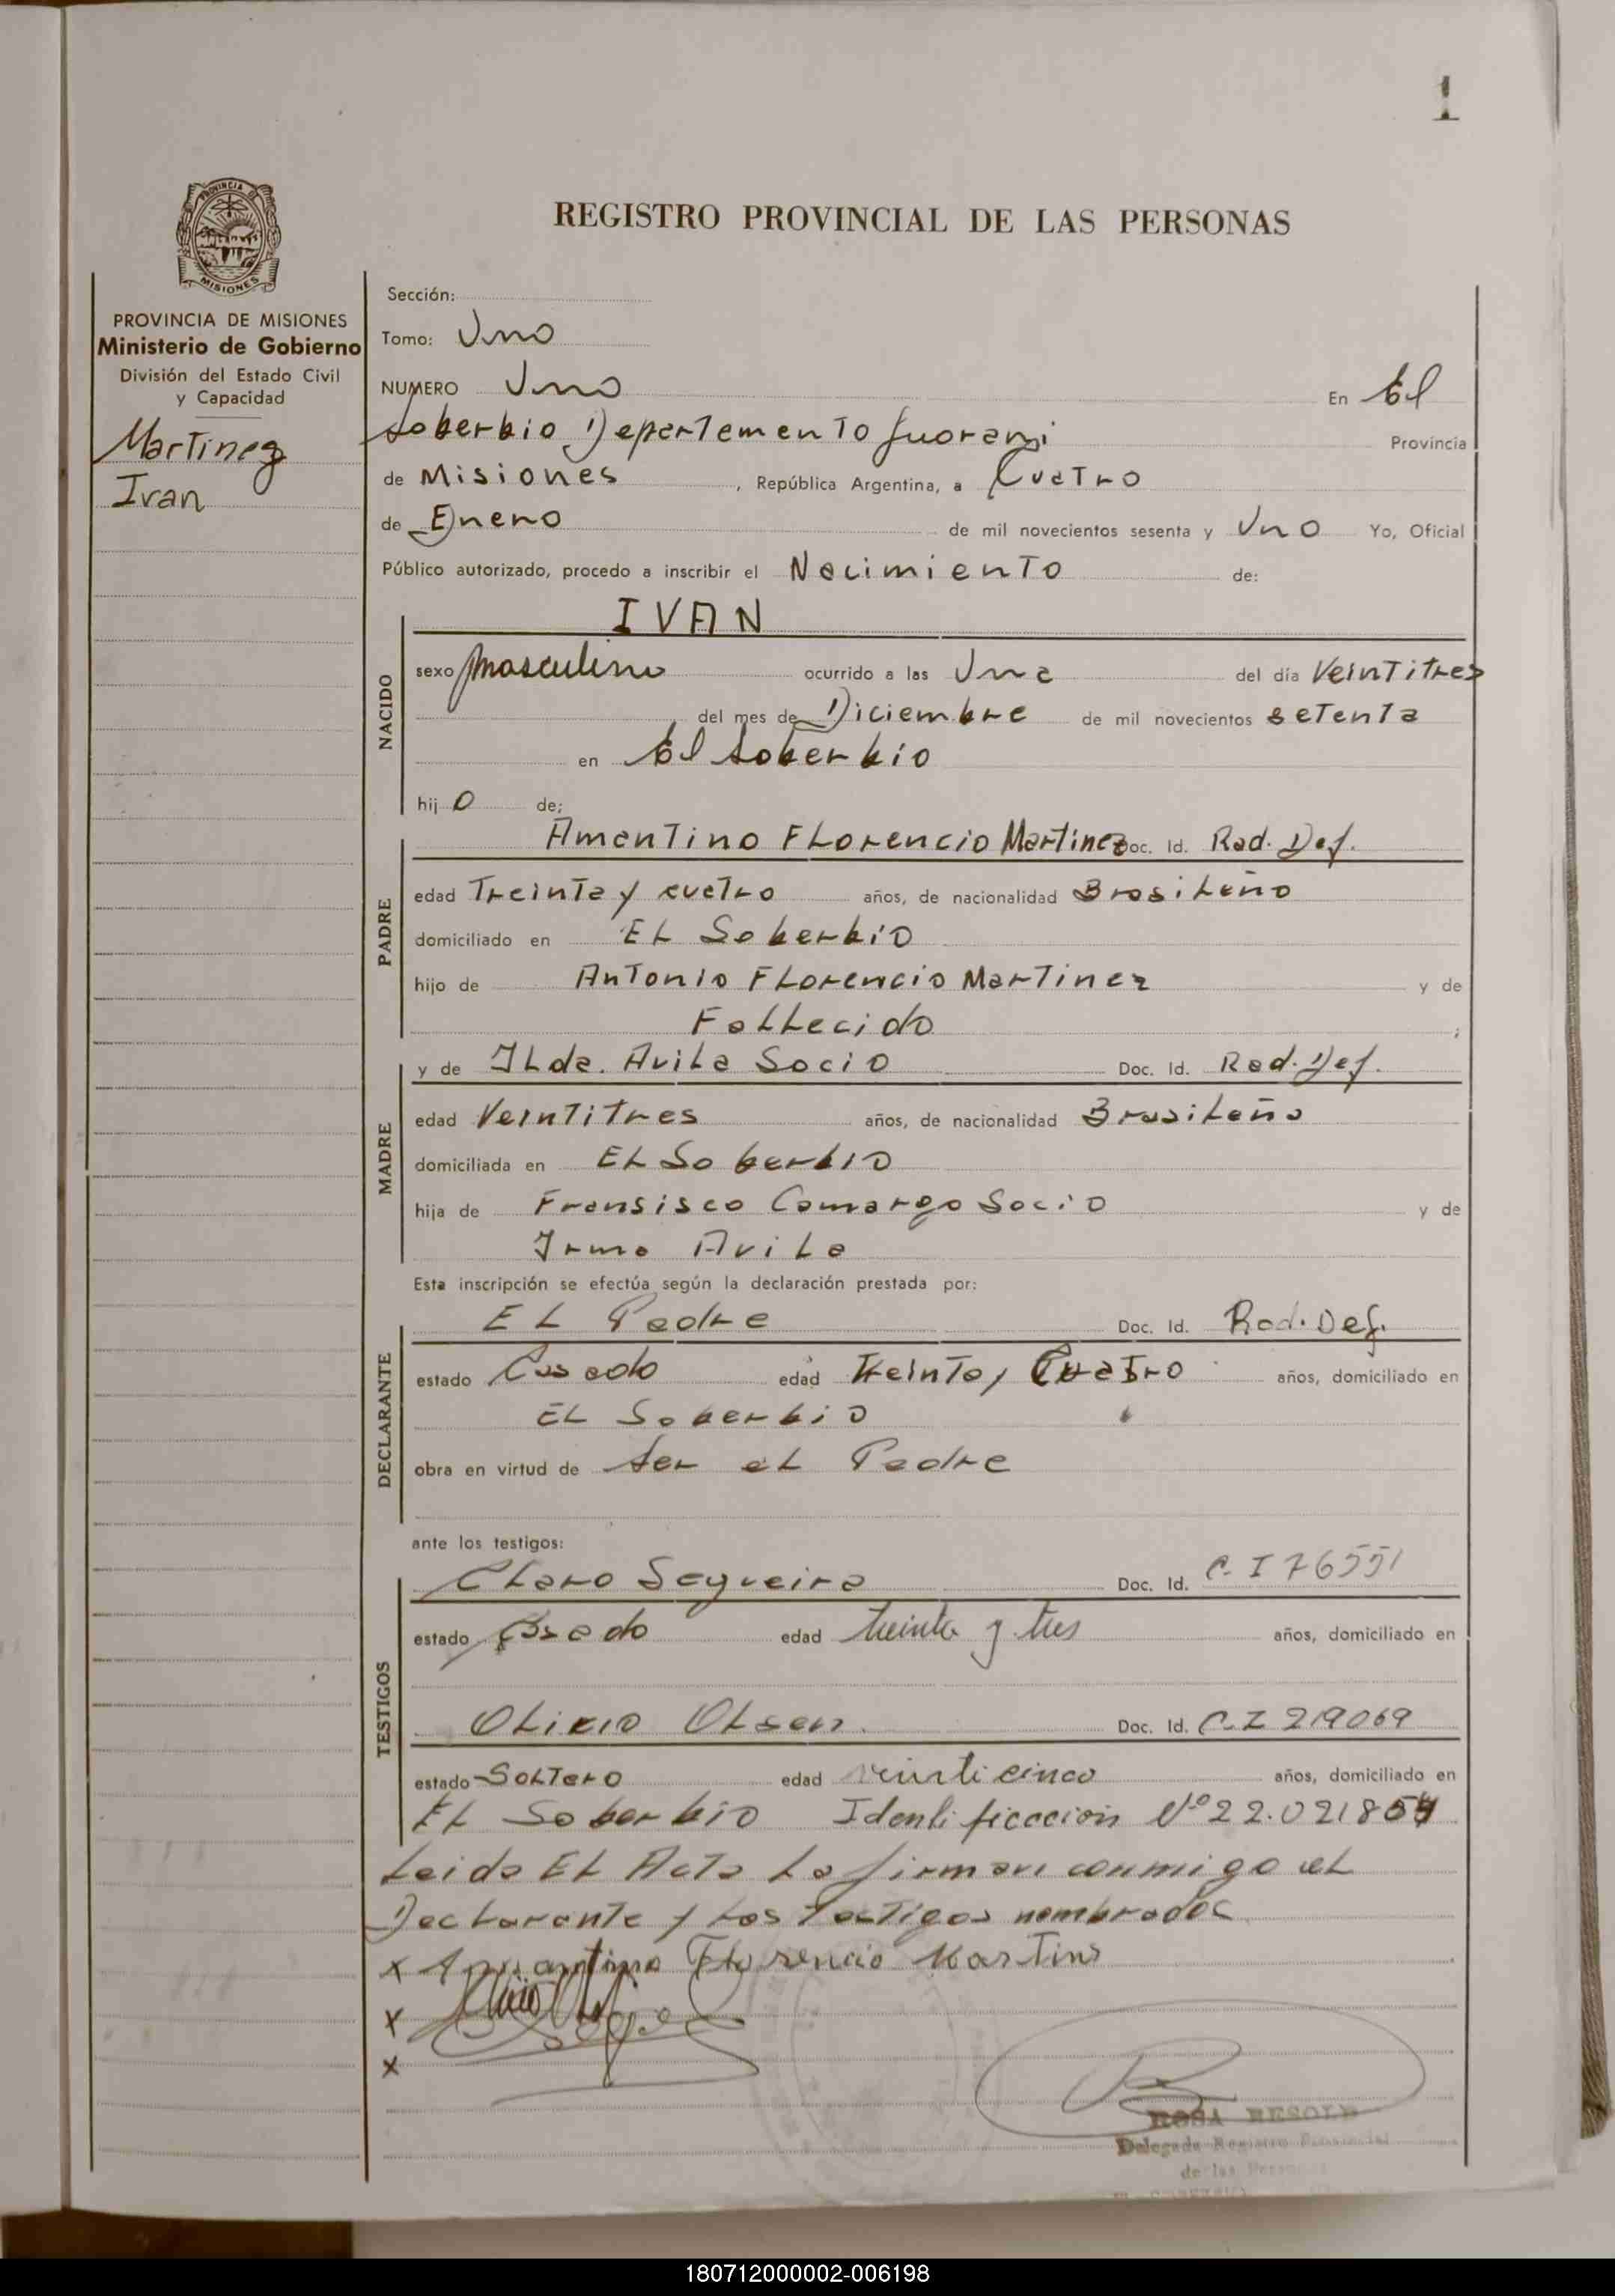 1
PROVINCIA DE
MISIONES
REGISTRO PROVINCIAL DE LAS PERSONAS
PROVINCIA DE MISIONES
Ministerio de Gobierno
División del Estado Civil
y Capacidad
Martinez
Ivan
Sección:
Tomo: Uno
NUMERO Uno En El
Soberbio Departamento Guarani Provincia
de Misiones, República Argentina, a Cuatro
de Enero de mil novecientos sesenta y Uno Yo, Oficial
Público autorizado, procedo a inscribir el Nacimiento de:
NACIDO
IVAN
sexo masculino ocurrido a las Una del día Veintitres
del mes de Diciembre de mil novecientos setenta
en El Soberbio
hijo de:
PADRE
Amentino Florencio Martinez Doc. Id. Rad. Def.
edad Treinta y cuatro años, de nacionalidad Brasileño
domiciliado en El Soberbio
hijo de Antonio Florencio Martinez y de
Fallecido ;
MADRE
y de Ilda. Avila Socio Doc. Id. Rad. Def.
edad Veintitres años, de nacionalidad Brasileña
domiciliada en El Soberbio
hija de Fransisco Camargo Socio y de
Irma Avila
Esta inscripción se efectúa según la declaración prestada por:
DECLARANTE
El Padre Doc. Id. Rad. Def.
estado Casado edad Treinta y Cuatro años, domiciliado en
El Soberbio
obra en virtud de ser el Padre
ante los testigos:
TESTIGOS
Claro Segueira Doc. Id. C. I 76551
estado Casado edad treinta y tres años, domiciliado en
Olirio Olsen Doc. Id. C.I 219069
estado Soltero edad veinticinco años, domiciliado en
El Soberbio Identificacion Nº 22.021854
Leida El Acta La firman conmigo el
Declarante y Los Testigos nombrados
x Amantino Florencio Martins
x
x
ROSA
Delegada Registro Provincial
de las Personas
180712000002-006198